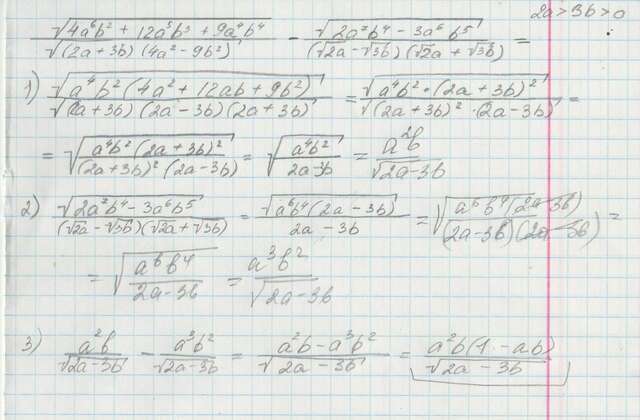 √(4a⁶b² + 12a⁵b³ + 9a⁴b⁴) / √((2a + 3b)(4a² − 9b²)) − √(2a⁷b⁴ − 3a⁶b⁵) / ((√2a − √3b)(√2a + √3b)) =
2a > 3b > 0
1) √(a⁴b²(4a² + 12ab + 9b²)) / √((2a + 3b)(2a − 3b)(2a + 3b)) = √(a⁴b² · (2a + 3b)²) / √((2a + 3b)² · (2a − 3b)) =
= √(a⁴b²(2a + 3b)² / ((2a + 3b)²(2a − 3b))) = √(a⁴b² / (2a − 3b)) = a²b / √(2a − 3b)
2) √(2a⁷b⁴ − 3a⁶b⁵) / ((√2a − √3b)(√2a + √3b)) = √(a⁶b⁴(2a − 3b)) / (2a − 3b) = √(a⁶b⁴(2a − 3b) / ((2a − 3b)(2a − 3b))) =
= √(a⁶b⁴ / (2a − 3b)) = a³b² / √(2a − 3b)
3) a²b / √(2a − 3b) − a³b² / √(2a − 3b) = (a²b − a³b²) / √(2a − 3b) = a²b(1 − ab) / √(2a − 3b)